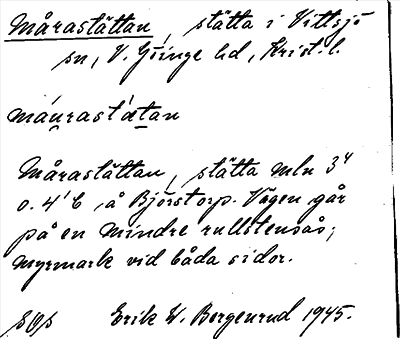 Mårastättan, stätta i Vittsjö
sn, V. Göinge hd, Krist. l.
máu̯rastæ̀tan
Mårastättan, stätta mln 3⁴
o. 4'6, å Bjärstorp. Vägen går
på en mindre rullstensås;
myrmark vid båda sidor.
Erik W. Borgenrud 1945.